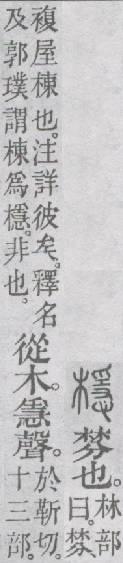 檼棼也。
林部
曰。棼、
複屋棟也。注詳彼矣。釋名
及郭璞謂棟爲檼。非也。
從木。㥯聲。
於靳切。
十三部。